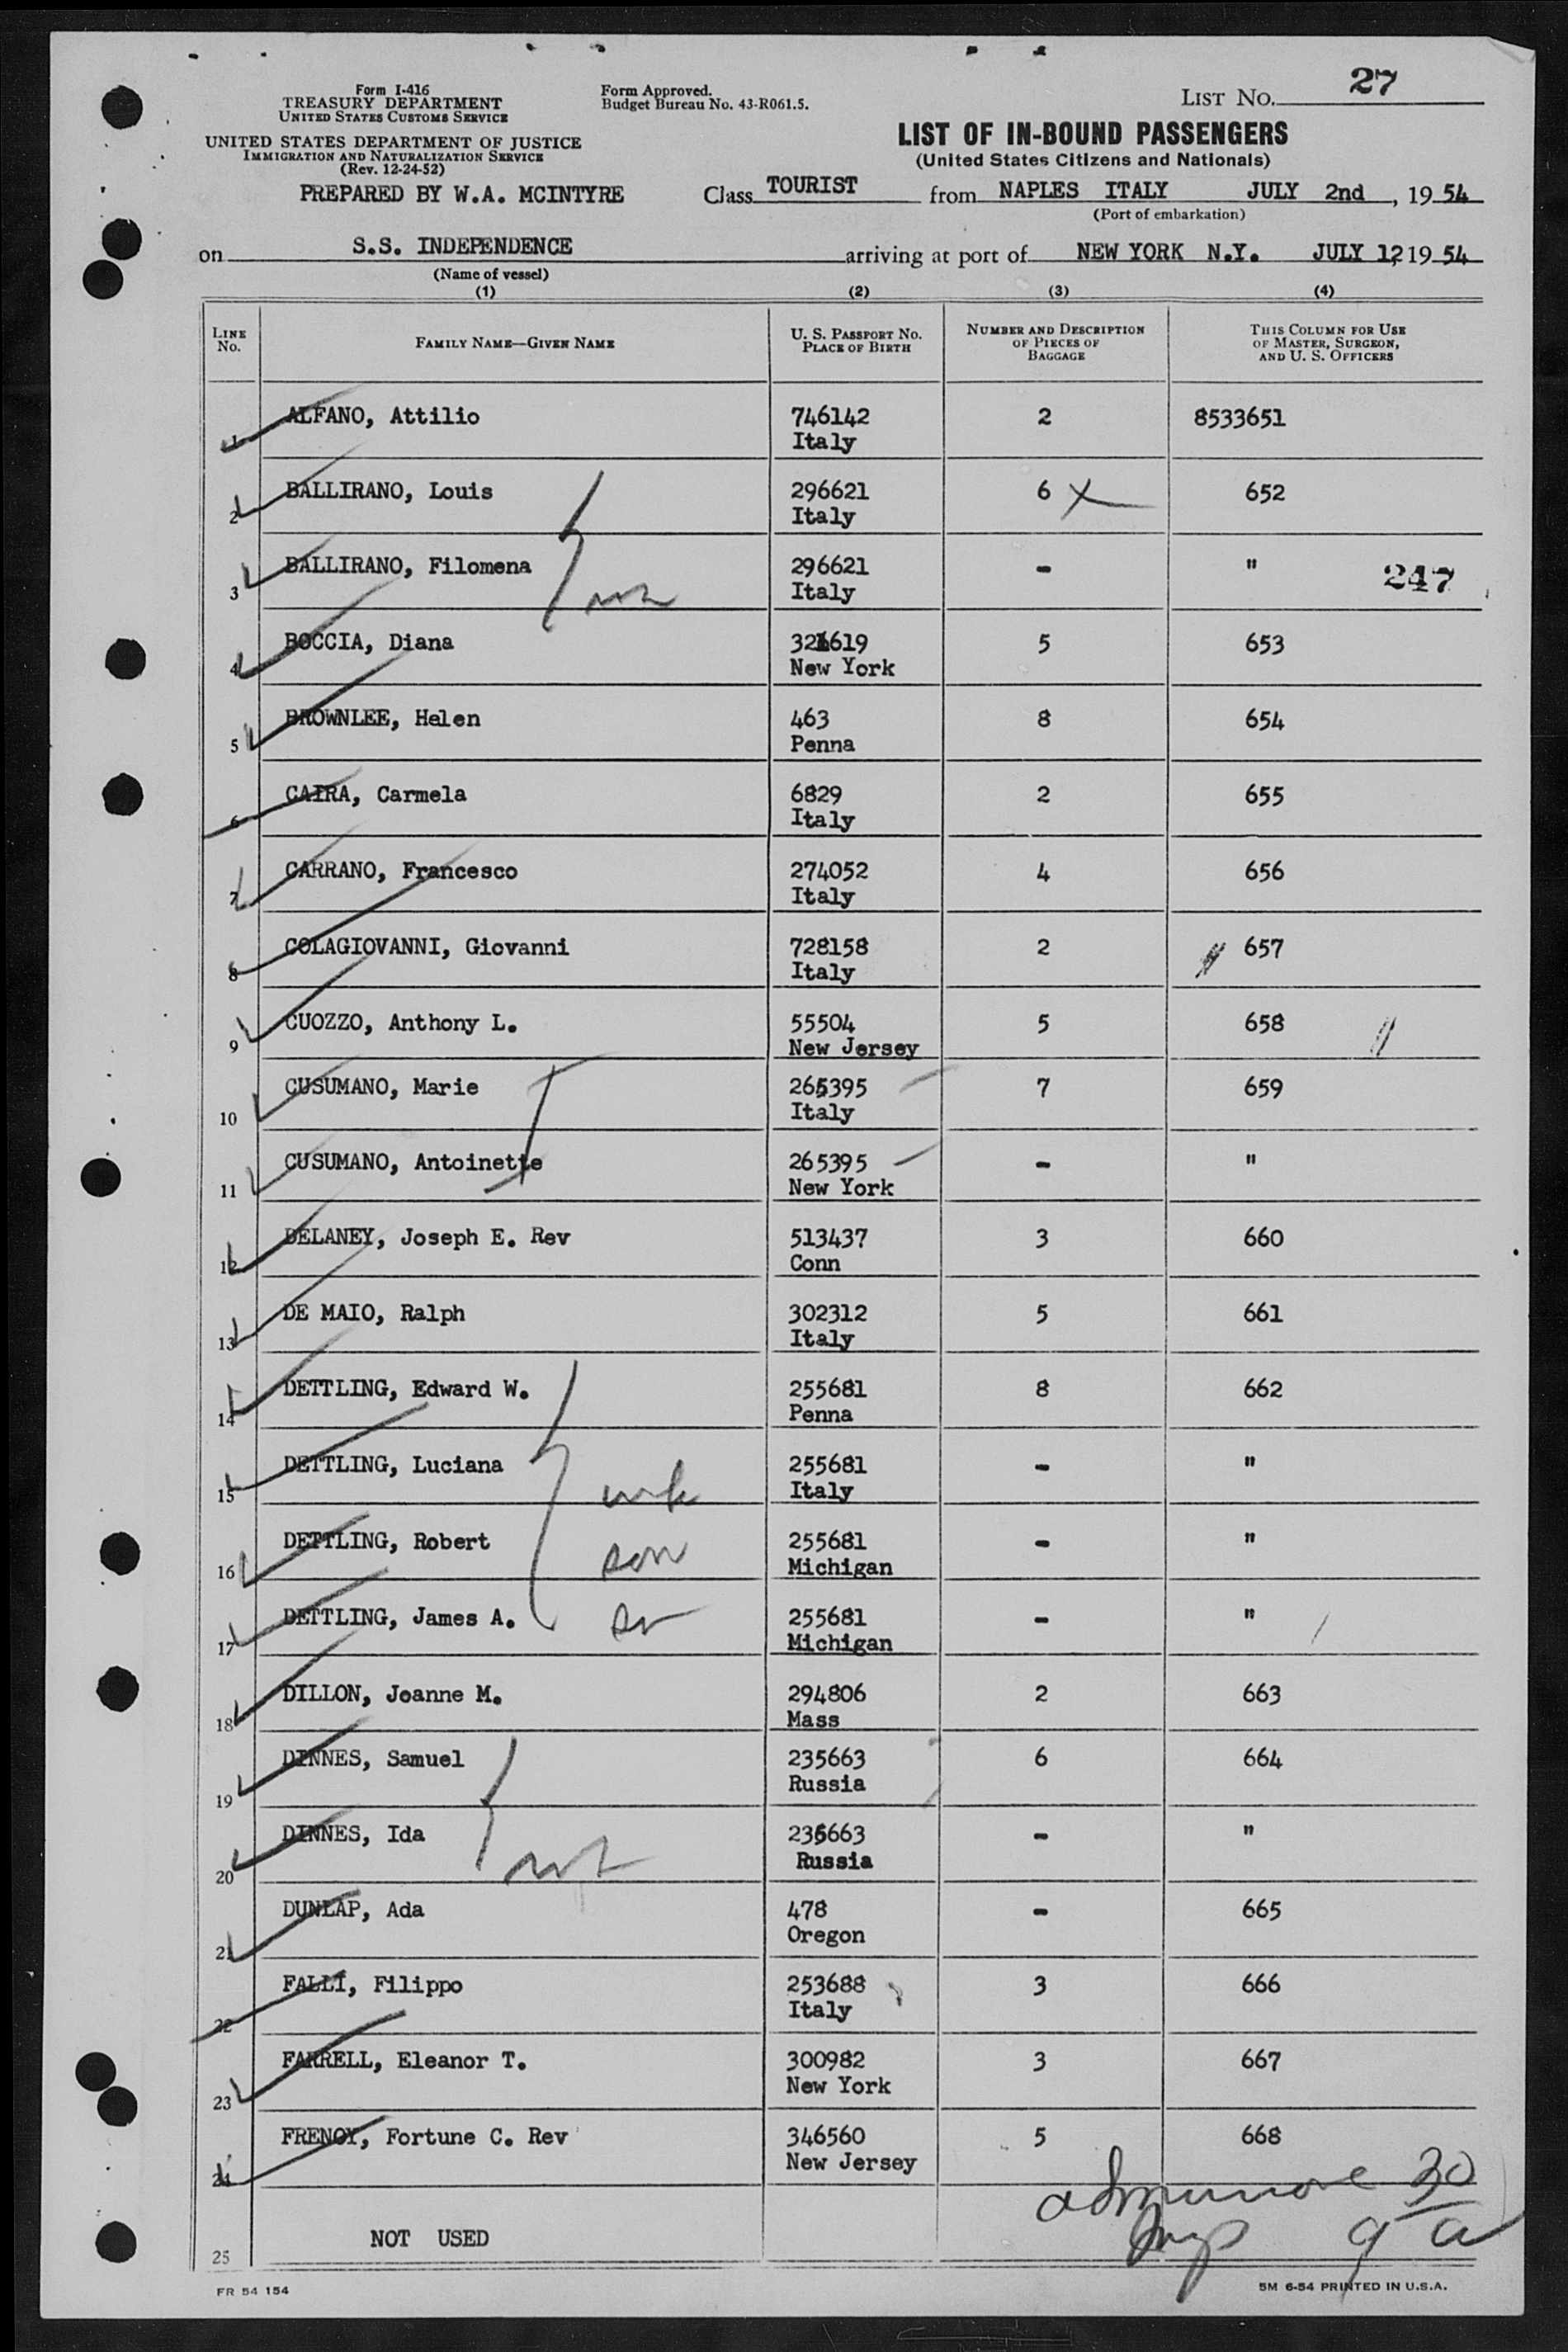 Form I-416
TREASURY DEPARTMENT
UNITED STATES CUSTOMS SERVICE
UNITED STATES DEPARTMENT OF JUSTICE
IMMIGRATION AND NATURALIZATION SERVICE
(Rev. 12-24-52)
PREPARED BY W.A. MCINTYRE
Form Approved.
Budget Bureau No. 43-R061.5.
LIST NO. 27
LIST OF IN-BOUND PASSENGERS
(United States Citizens and Nationals)
Class TOURIST from NAPLES ITALY JULY 2nd, 19 54
(Port of embarkation)
on S.S. INDEPENDENCE arriving at port of NEW YORK N.Y. JULY 12, 19 54
(Name of vessel)
(1) (2) (3) (4)
LINE No. FAMILY NAME—GIVEN NAME U. S. PASSPORT NO. PLACE OF BIRTH NUMBER AND DESCRIPTION OF PIECES OF BAGGAGE THIS COLUMN FOR USE OF MASTER, SURGEON, AND U. S. OFFICERS
1 ALFANO, Attilio 746142 2 8533651
Italy
2 BALLIRANO, Louis 296621 6 X 652
Italy
3 BALLIRANO, Filomena 296621 - " 247
Italy
4 BOCCIA, Diana 619 5 653
New York
5 BROWNLEE, Helen 463 8 654
Penna
6 CAIRA, Carmela 6829 2 655
Italy
7 CARRANO, Francesco 274052 4 656
Italy
8 COLAGIOVANNI, Giovanni 728158 2 657
Italy
9 CUOZZO, Anthony L. 55504 5 658
New Jersey
10 CUSUMANO, Marie 265395 7 659
Italy
11 CUSUMANO, Antoinette 265395 - "
New York
12 DELANEY, Joseph E. Rev 513437 3 660
Conn
13 DE MAIO, Ralph 302312 5 661
Italy
14 DETTLING, Edward W. 255681 8 662
Penna
15 DETTLING, Luciana 255681 - "
Italy
16 DETTLING, Robert son 255681 - "
Michigan
17 DETTLING, James A. 255681 - "
Michigan
18 DILLON, Joanne M. 294806 2 663
Mass
19 DINNES, Samuel 235663 6 664
Russia
20 DINNES, Ida 235663 - "
Russia
21 DUNLAP, Ada 478 - 665
Oregon
22 FALLI, Filippo 253688 3 666
Italy
23 FARRELL, Eleanor T. 300982 3 667
New York
24 FRENOY, Fortune C. Rev 346560 5 668
New Jersey
30
25 NOT USED
FR 54 154
5M 6-54 PRINTED IN U.S.A.